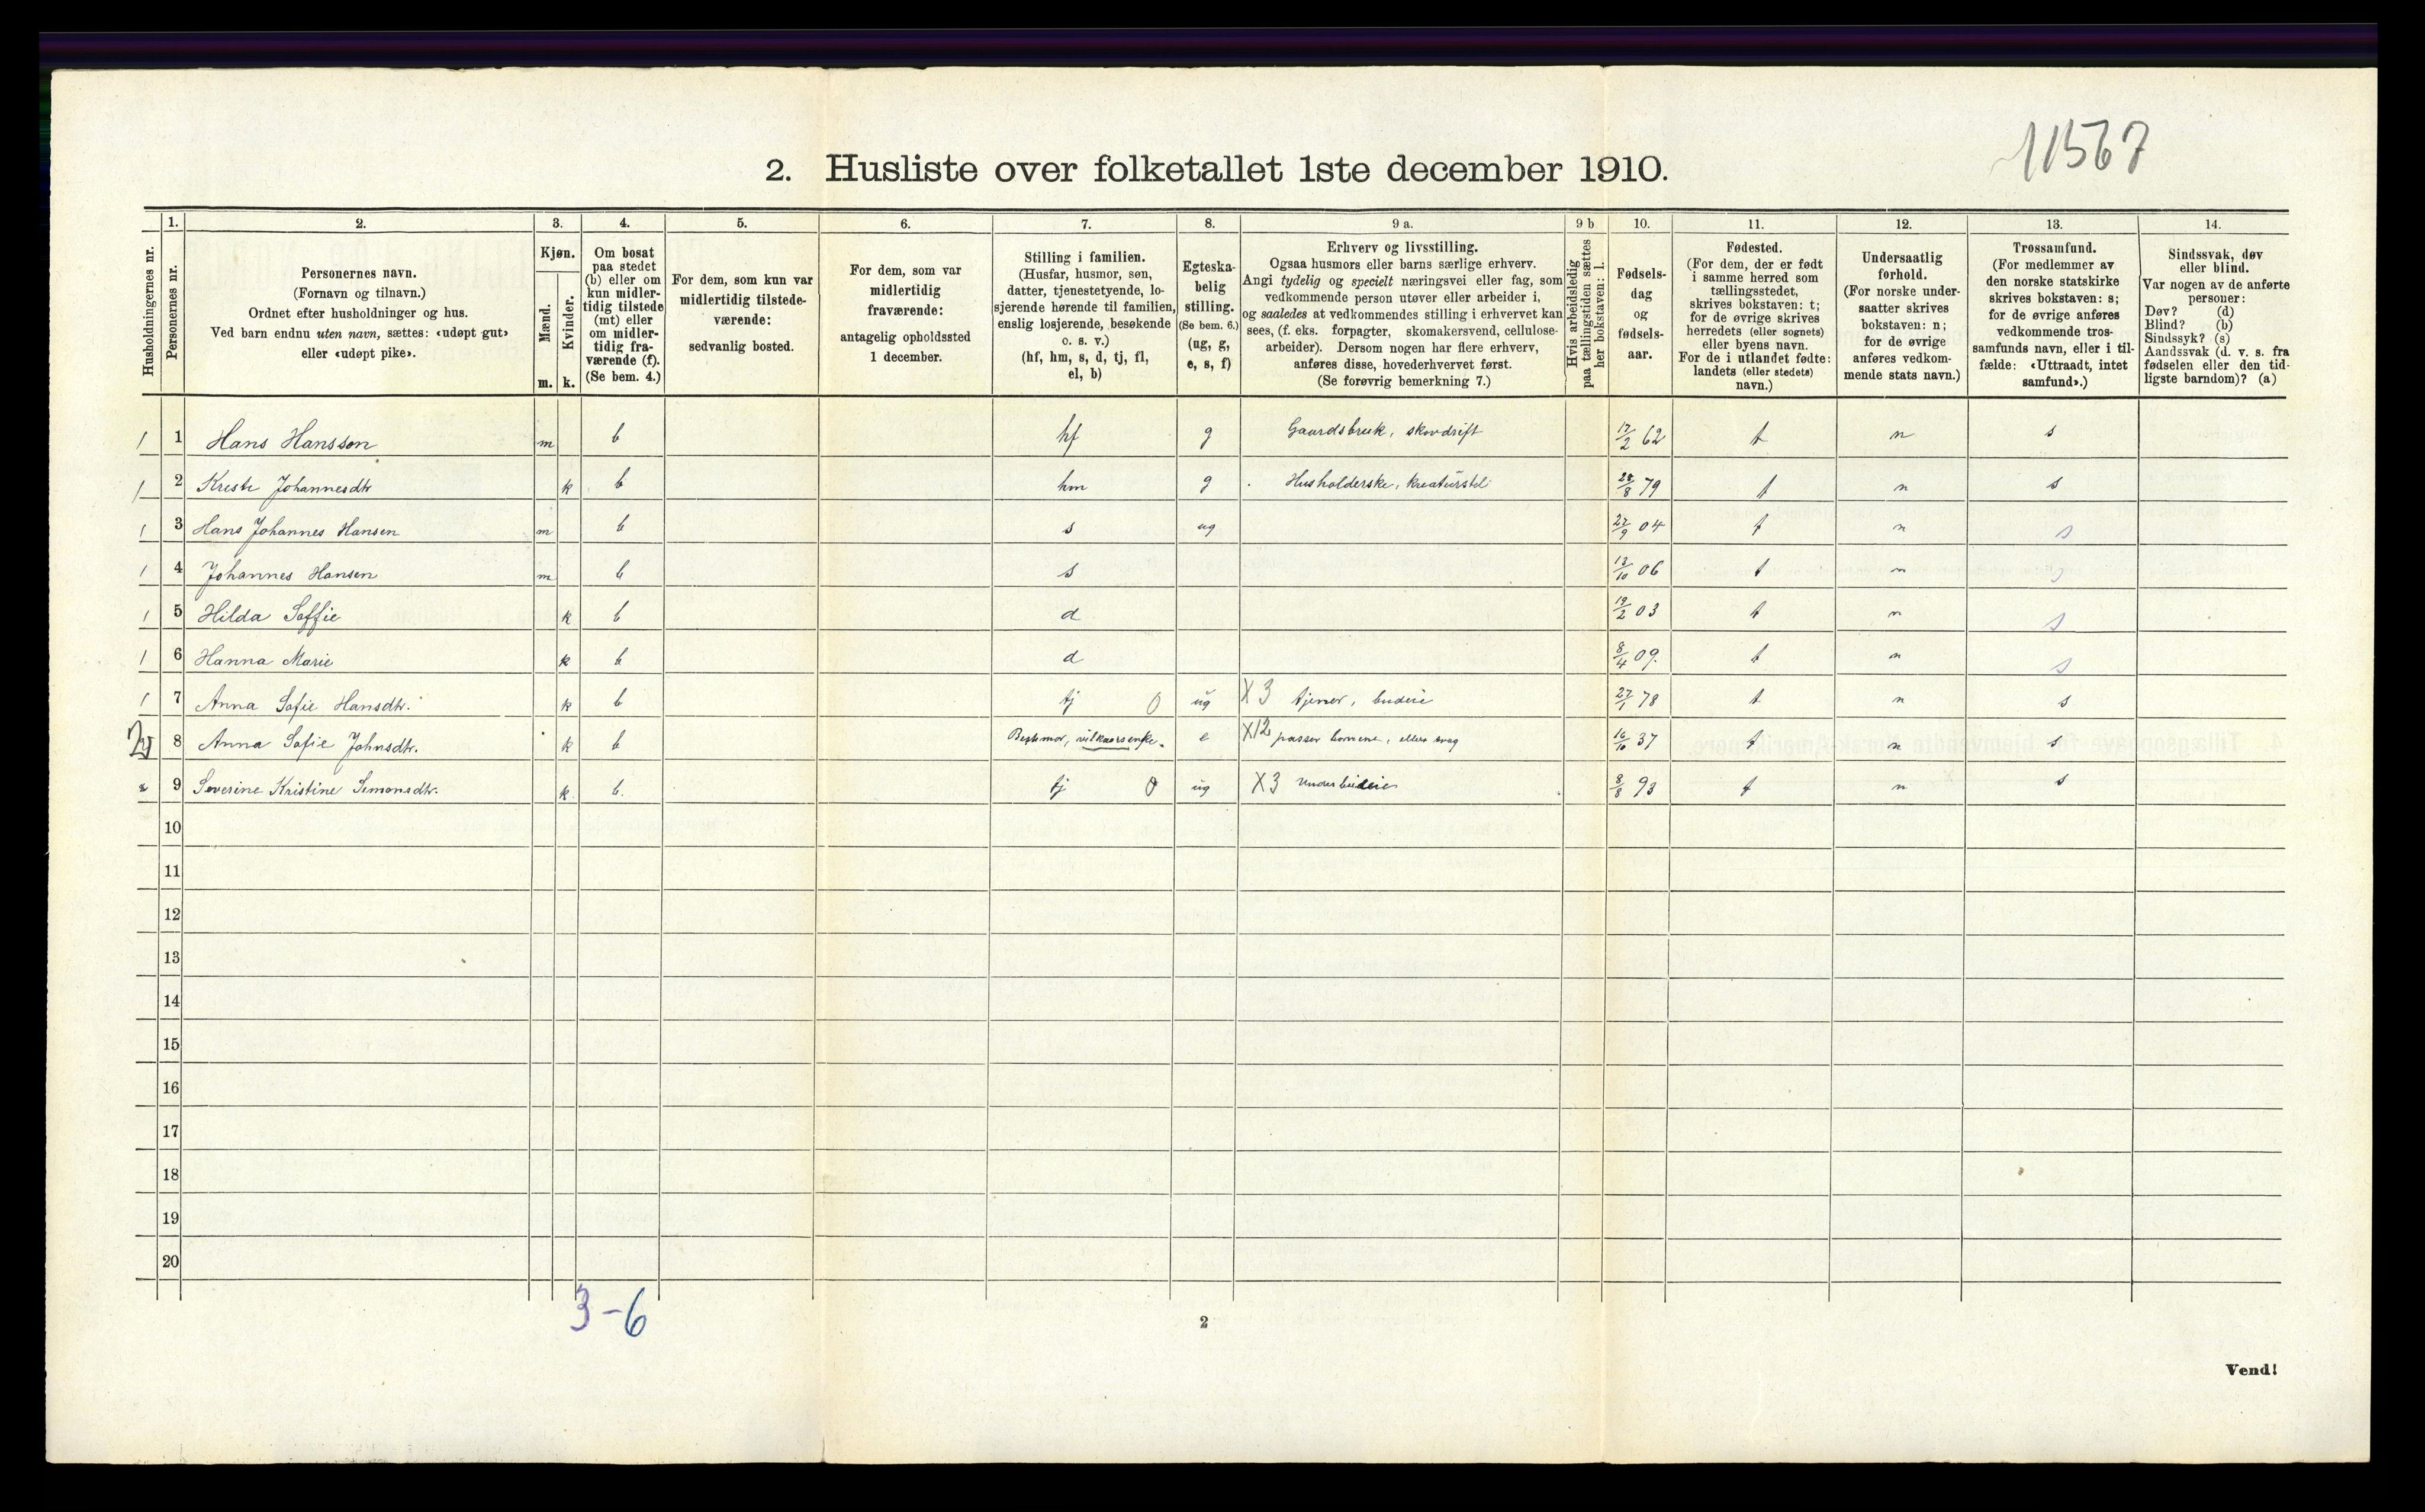 11567
2. Husliste over folketallet 1ste december 1910.
Husholdningernes nr.
1.
Personernes nr.
2.
Personernes navn.
(Fornavn og tilnavn.)
Ordnet efter husholdninger og hus.
Ved barn endnu uten navn, sættes: «udøpt gut»
eller «udøpt pike».
3.
Kjøn.
Mænd.
Kvinder.
m. k.
4.
Om bosat
paa stedet
(b) eller om
kun midler-
tidig tilstede
(mt) eller
om midler-
tidig fra-
værende (f).
(Se bem. 4.)
5.
For dem, som kun var
midlertidig tilstede-
værende:
sedvanlig bosted.
6.
For dem, som var
midlertidig
fraværende:
antagelig opholdssted
1 december.
7.
Stilling i familien.
(Husfar, husmor, søn,
datter, tjenestetyende, lo-
sjerende hørende til familien,
enslig losjerende, besøkende
o. s. v.)
(hf, hm, s, d, tj, fl,
el, b)
8.
Egteska-
belig
stilling.
(Se bem. 6.)
(ug, g,
e, s, f)
9 a.
Erhverv og livsstilling.
Ogsaa husmors eller barns særlige erhverv.
Angi tydelig og specielt næringsvei eller fag, som
vedkommende person utøver eller arbeider i,
og saaledes at vedkommendes stilling i erhvervet kan
sees, (f. eks. forpagter, skomakersvend, cellulose-
arbeider). Dersom nogen har flere erhverv,
anføres disse, hovederhvervet først.
(Se forøvrig bemerkning 7.)
9 b
Hvis arbeidsledig
paa tællingstiden sættes
her bokstaven: l.
10.
Fødsels-
dag
og
fødsels-
aar.
11.
Fødested.
(For dem, der er født
i samme herred som
tællingsstedet,
skrives bokstaven: t;
for de øvrige skrives
herredets (eller sognets)
eller byens navn.
For de i utlandet fødte:
landets (eller stedets)
navn.)
12.
Undersaatlig
forhold.
(For norske under-
saatter skrives
bokstaven: n;
for de øvrige
anføres vedkom-
mende stats navn.)
13.
Trossamfund.
(For medlemmer av
den norske statskirke
skrives bokstaven: s;
for de øvrige anføres
vedkommende tros-
samfunds navn, eller i til-
fælde: «Uttraadt, intet
samfund».)
14.
Sindssvak, døv
eller blind.
Var nogen av de anførte
personer:
Døv? (d)
Blind? (b)
Sindssyk? (s)
Aandssvak (d. v. s. fra
fødselen eller den tid-
ligste barndom)? (a)
1 1 Hans Hansson m b hf g Gaardsbruk, skovdrift 17/2 62 t n s
1 2 Kresti Johannesdtr k b hm g Husholderske, kreaturstel 28/8 79 t n s
1 3 Hans Johannes Hansen m b s ug 27/9 04 t n s
1 4 Johannes Hansen m b s 13/10 06 t n s
1 5 Hilda Soffie k b d 19/2 03 t n s
1 6 Hanna Marie k b d 8/4 09. t n s
1 7 Anna Sofie Hansdtr. k b tj 0 ug X3 tjener, budeie 27/1 78 t n s
8 Anna Sofie Johnsdtr. k b Bestmor, vilkaarsenke. e X12 passer børnene, ellers svag 16/10 37 t n s
2 9 Severine Kristine Simonsdtr. k b. tj 0 ug X3 underbudeie 8/8 93 t n s
10
11
12
13
14
15
16
17
18
19
20
3-6
2
Vend!